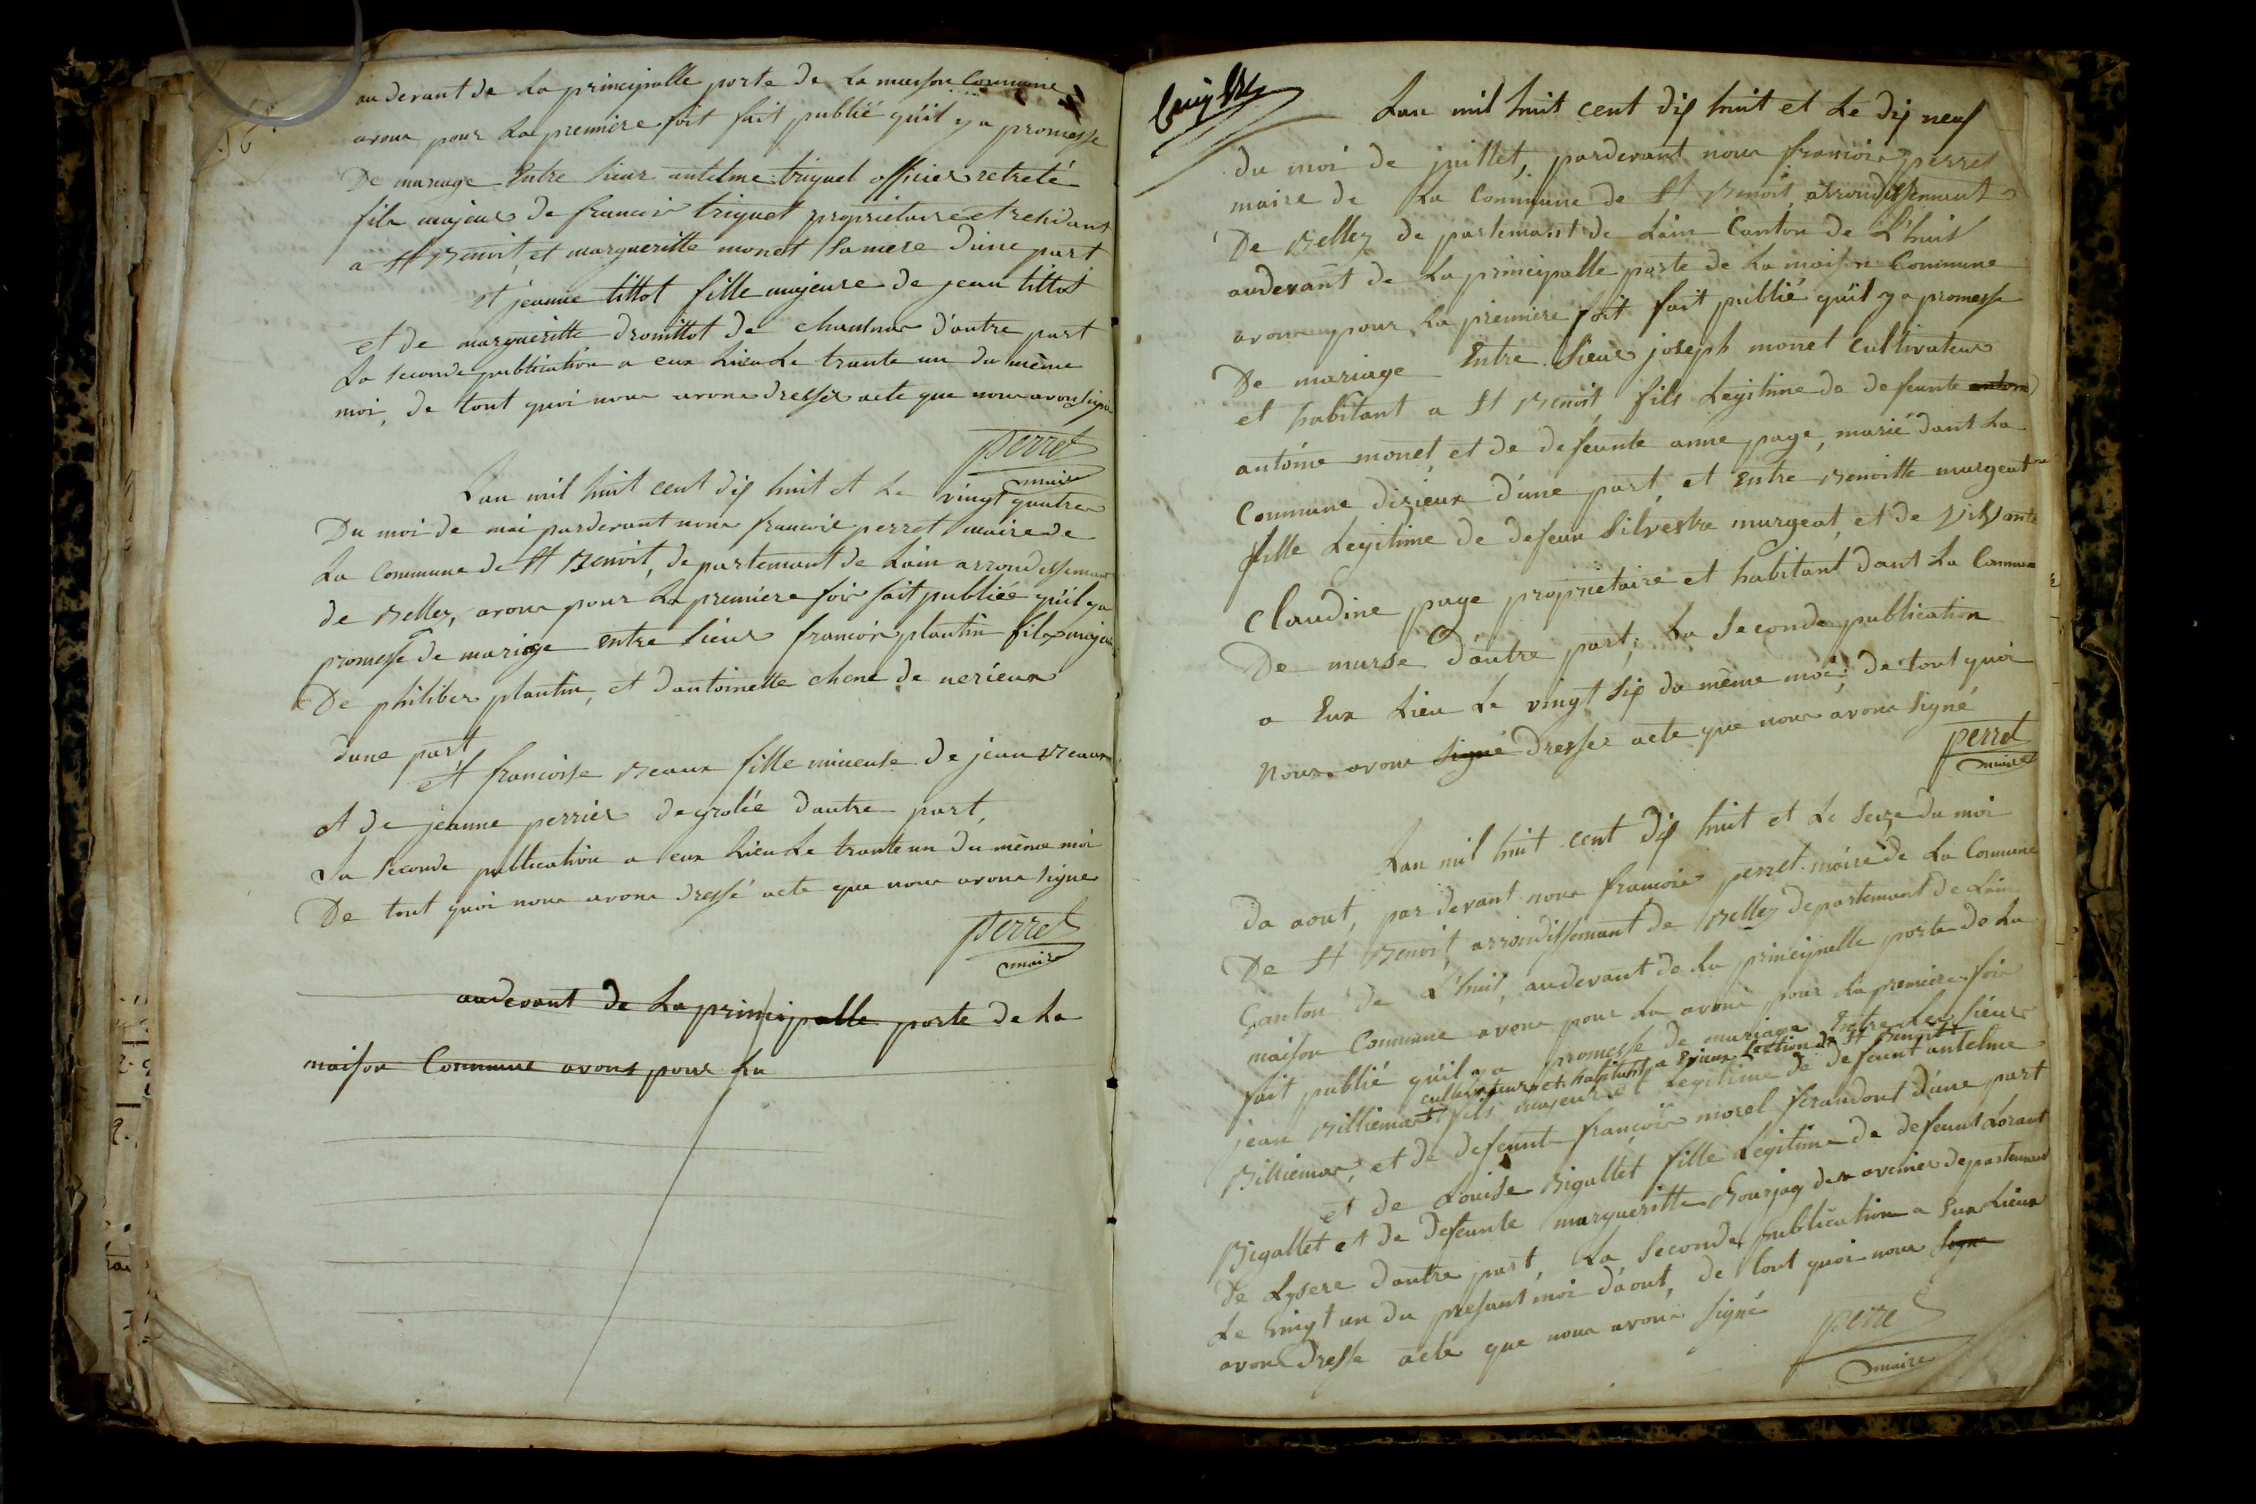 au devant de La principalle porte de La maison Commune
avons pour La premiere foit fait publié qu'il y a promesse
De mariage Entre Sieur antelme triquet officier retreté
fils majeur de francois triquet propriétaire et residant
a St Benoit, et margueritte monet Sa mere d'une part
et jeanne tittot fille majeure de jean tittot
et de margueritte drouittot de d'autre part
La seconde publication a eux Lieu Le trante un du même
moi, de tout quoi nous avons dressér acte que nous avons signé
perret
maire
Lan mil huit cent dix huit et Le vingt quatre
Du moi de mai pardevant nous francois perret maire de
La Commune de St Benoit, departemant de Lain arrondissemant
de Belley, avons pour La premiere fois fait publiéé qu'il y a
promesse de mariage entre Sieur francois plantin fils majeur
De philiber plantin, et d'antoinette chene de verieux
dune part
et francoise Beaux fille mineuse de jean Beaux
et de jeanne perrier de grolée dautre part,
La seconde publication a eux Lieu Le trante un du même moi
De tout quoi nous avons dressé acte que nous avons signé
perret
maire
audevant de La principalle porte de La
maison Commune avons pour La
Lan mil huit cent dix huit et Le dix neuf
du moi de juillet, pardevant nous francois perret
maire de La Commune de St Benoit, arrondissemant
De Belley departemant de Lain Canton de L'huis
audevant de La principalle porte de La maison Commune
avons pour La premiere foit fait publié qu'il y a promesse
De mariage Entre Sieur joseph monet Cultivateur
et habitant a St Benoit, fils Legitime de defeunte
antoine monet, et de defeunte anne page, marié dant La
Commune dizieux d'une part, et Entre Benoitte murgeat
fille Legitime de defeun Silvestre murgeat, et de vivante
Claudine page propriétaire et habitant dant La Commune
De murse d'autre part; La Seconde publication
a Eux Lieu Le vingt six du même moi; de tout quoi
Nous avons signé dresser acte que nous avons signé
perret
maire
Lan mil huit cent dix huit et Le seize du moi
da aout, par devant nous francois perret maire de La Commune
De St Benoit, arrondissemant de Belley departemant de Lain
Canton de L'huis, audevant de La principalle porte de La
maison Commune avons pour La avons pour La premiere fois
fait publié qu'il y a promesse de mariage Entre Les Sieur
cultivateur et habitant a Evieux Section de St Benoit
jean Billiemas fils majeur et Legitime de defeunt antelme
Billiemas, et de defeunte françoise morel feraudont d'une part
et de Louise Bigallet fille Legitime de defeunt Lorant
Bigallet et de defeunte margueritte Gourjag des avenier departemant
De Lysere d'autre part, La Seconde publication a Eux Lieux
Le vingt un du presant moi d'aout, de tout quoi nous signe
avons dresse acte que nous avons signé
perret
maire